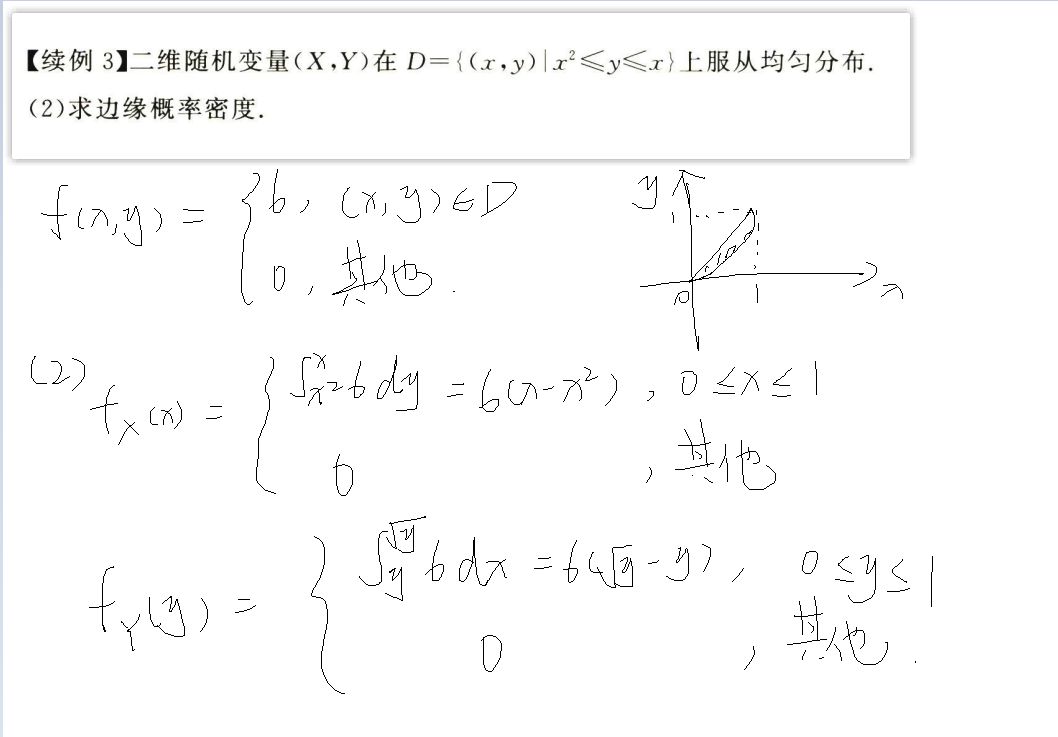 【续例 3】二维随机变量(X,Y)在 D={(x,y)|x²≤y≤x}上服从均匀分布.
(2)求边缘概率密度.
f(x,y) = { 6, (x,y)∈D
0, 其他.
y
1
0
1
x
(2) f_X(x) = { ∫_{x²}^{x} 6 dy = 6(x-x²), 0≤x≤1
0, 其他
f_Y(y) = { ∫_y^{√y} 6 dx = 6(√y-y), 0≤y≤1
0, 其他.